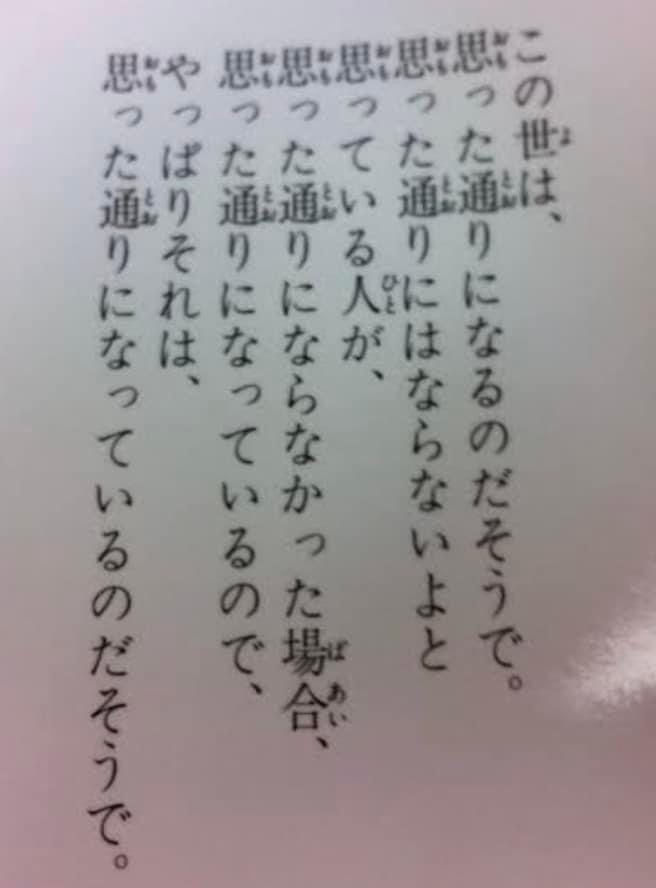 この世は、
思った通りになるのだそうで。
思った通りにはならないよと
思っている人が、
思った通りにならなかった場合、
思った通りになっているので、
やっぱりそれは、
思った通りになっているのだそうで。